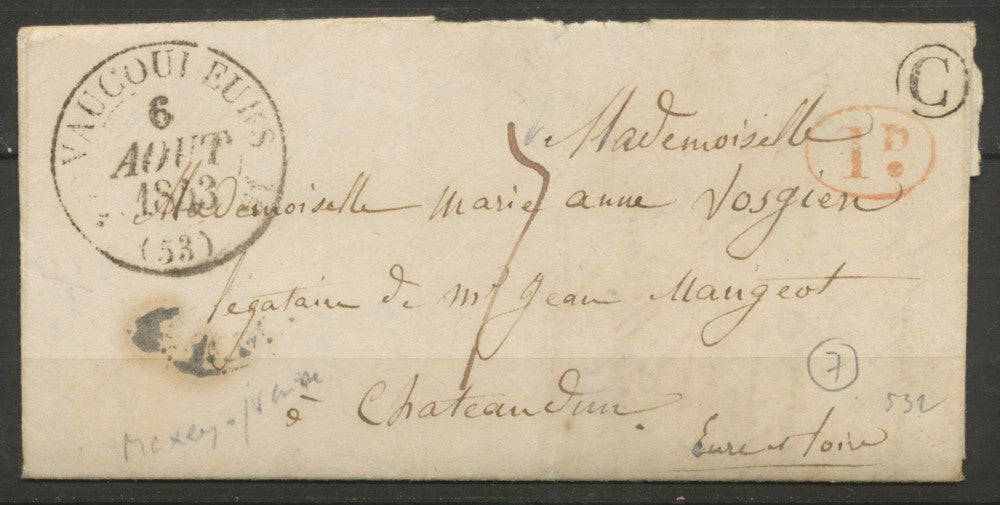 VAUCOULEURS
6
AOUT
1843
(53)
C
1 D.
Mademoiselle
Mademoiselle marie anne Vosgien
legataire de Mr Jean Mangeot
à Chateaudun
Eure et Loire
7
532